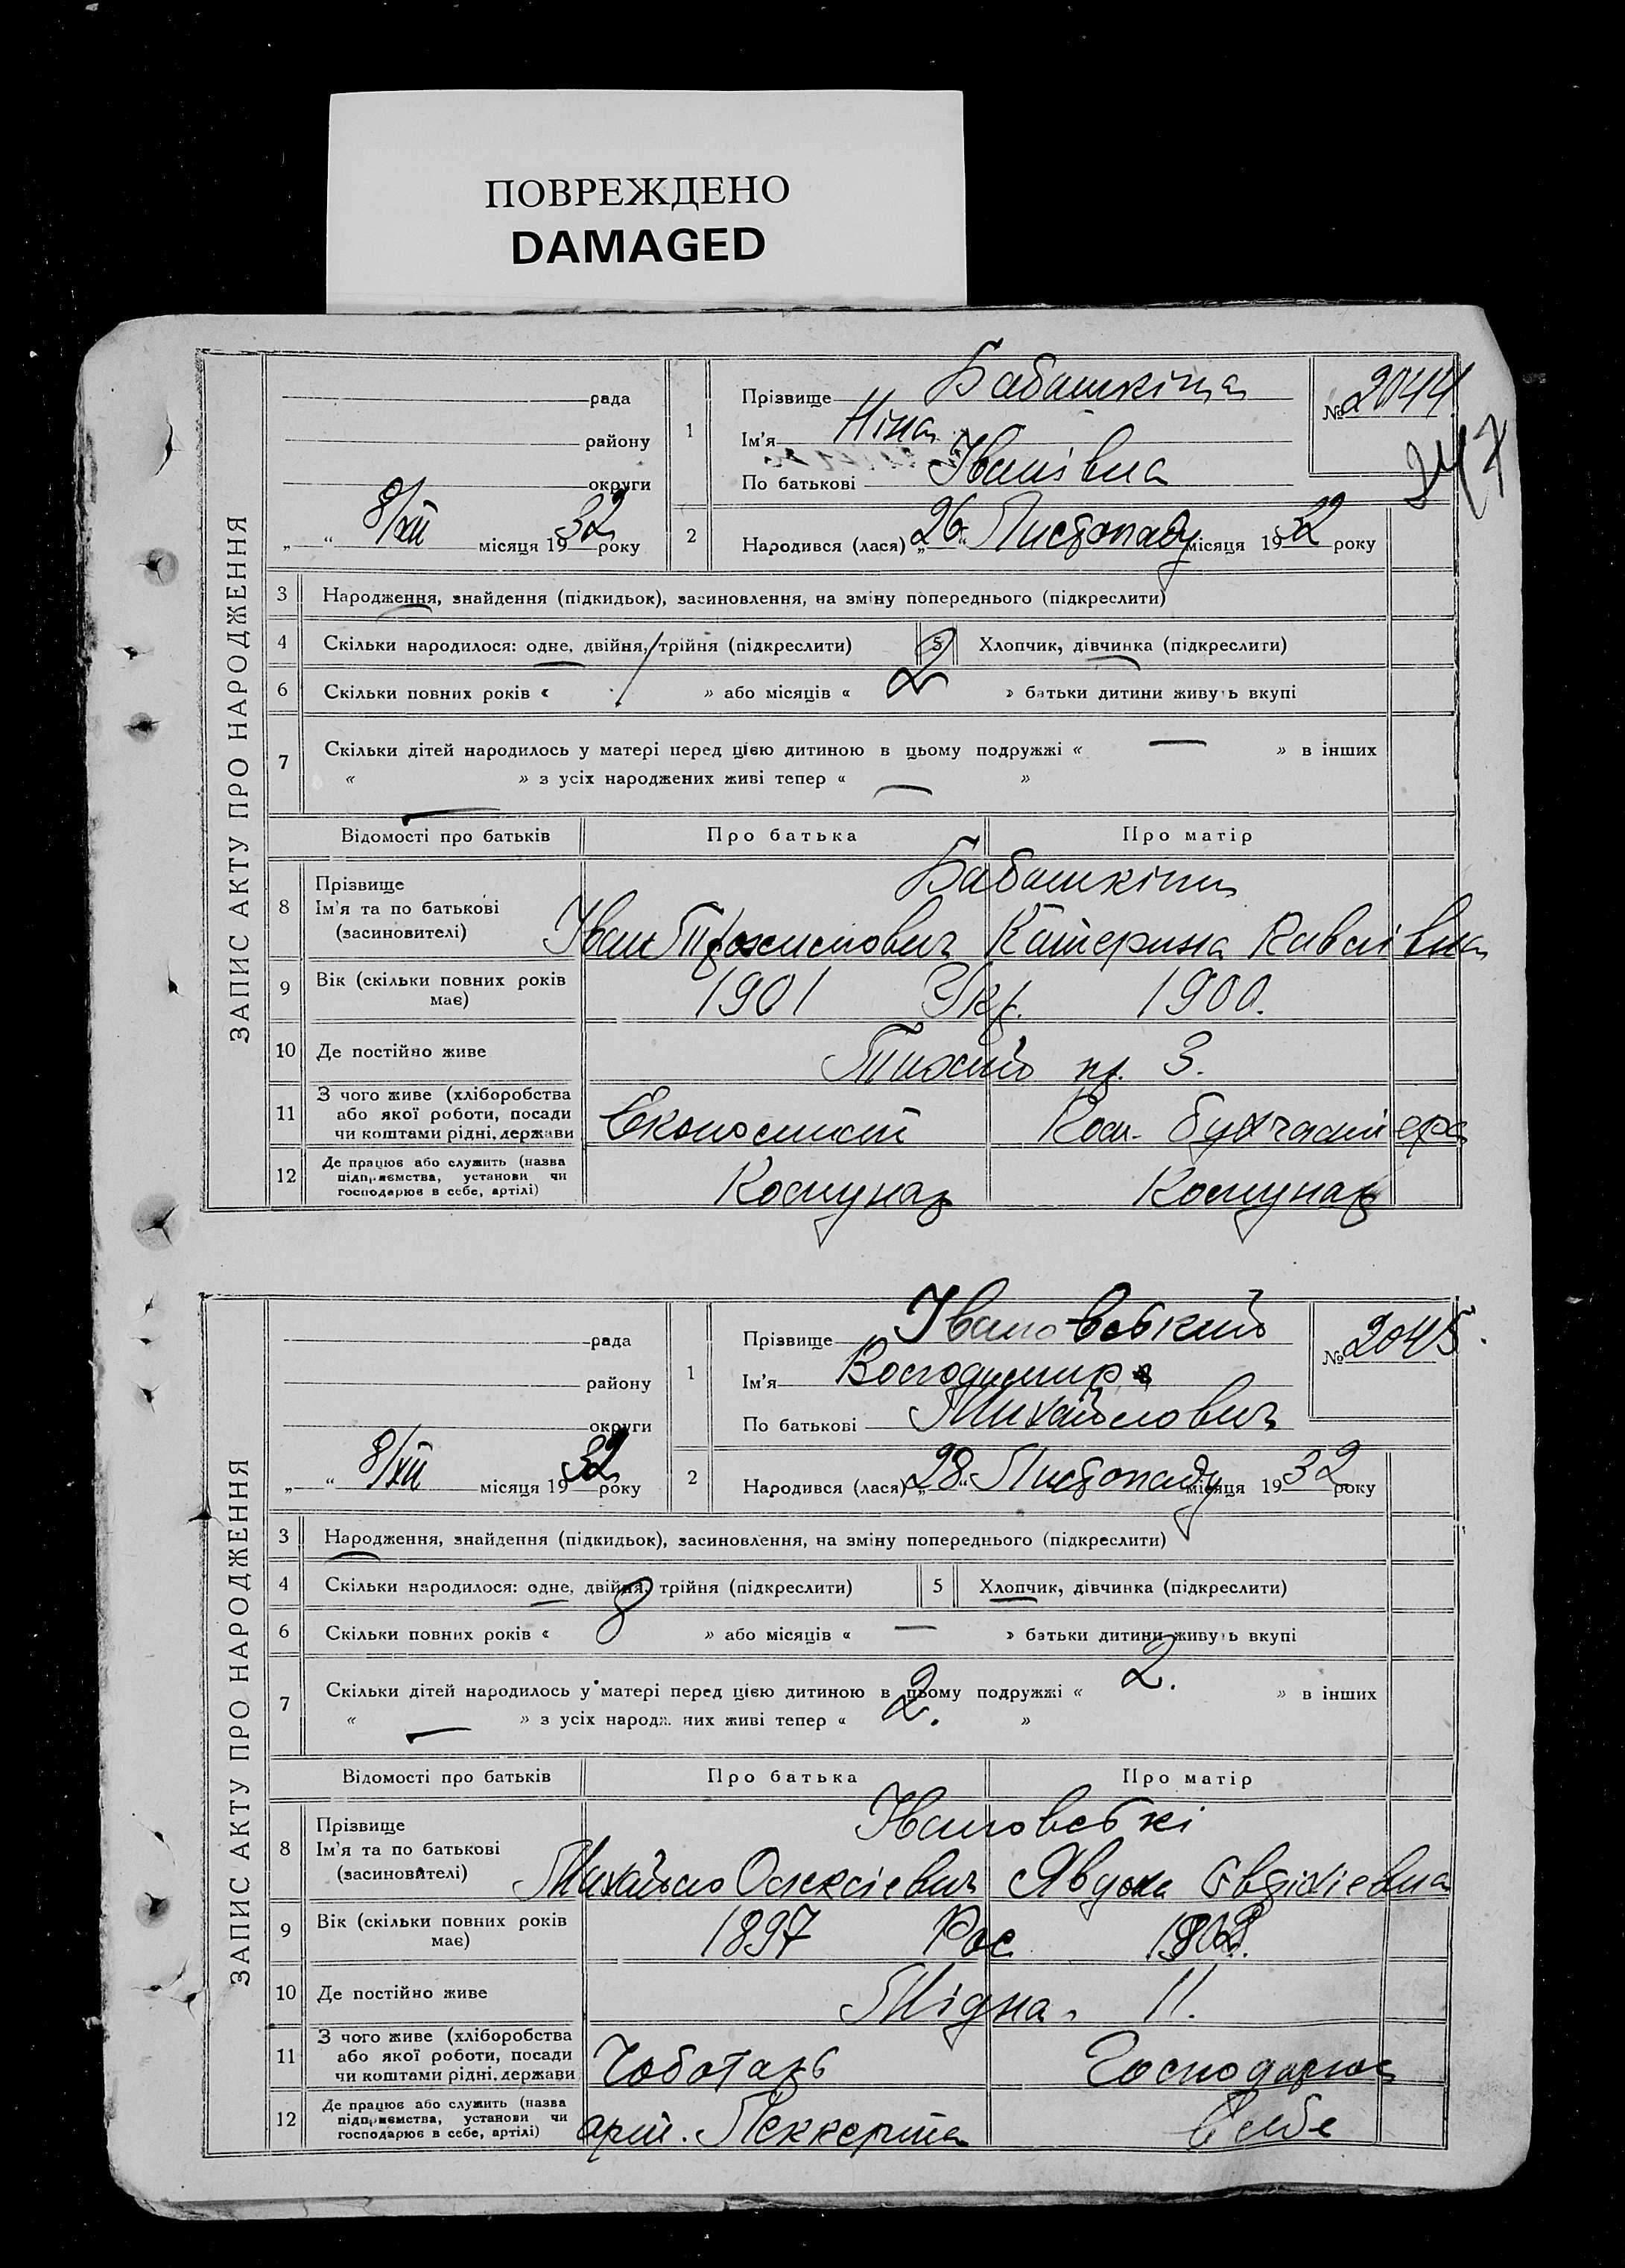 ПОВРЕЖДЕНО
DAMAGED
ЗАПИС АКТУ ПРО НАРОДЖЕННЯ
рада
району
округи
„ “ 8/XII місяця 1932 року
1
Прізвище Бабашкіна
Ім'я Ніна
По батькові Іванівна
№ 2044
247
2
Народився (лася) „26“ Листопаду місяця 1932 року
3 Народження, знайдення (підкидьок), засиновлення, на зміну попереднього (підкреслити)
4 Скільки народилося: одне, двійня, трійня (підкреслити) 5 Хлопчик, дівчинка (підкреслити)
6 Скільки повних років « » або місяців « 2 » батьки дитини живуть вкупі
7 Скільки дітей народилось у матері перед цією дитиною в цьому подружжі « — » в інших
« — » з усіх народжених живі тепер « — »
Відомості про батьків Про батька Про матір
8 Прізвище
Ім'я та по батькові
(засиновителі)
Бабашкіни
Іван Катерина
9 Вік (скільки повних років має) 1901 Укр. 1900.
10 Де постійно живе 3.
11 З чого живе (хліборобства
або якої роботи, посади
чи коштами рідні, держави
Економист Пом. бухгалтера
12 Де працює або служить (назва
підприємства, установи чи
господарює в себе, артілі)
Комунар Комунар
ЗАПИС АКТУ ПРО НАРОДЖЕННЯ
рада
району
округи
„ “ 8/XII місяця 1932 року
1
Прізвище Івановський
Ім'я Володимир
По батькові Михайлович
№ 2045.
2
Народився (лася) „28“ Листопаду місяця 1932 року
3 Народження, знайдення (підкидьок), засиновлення, на зміну попереднього (підкреслити)
4 Скільки народилося: одне, двійня, трійня (підкреслити) 5 Хлопчик, дівчинка (підкреслити)
6 Скільки повних років « 8 » або місяців « — » батьки дитини живуть вкупі
7 Скільки дітей народилось у матері перед цією дитиною в цьому подружжі « 2. » в інших
« — » з усіх народж. них живі тепер « 2. »
Відомості про батьків Про батька Про матір
8 Прізвище
Ім'я та по батькові
(засиновителі)
Івановські
Михайло Олексієвич Явдоха Євдікієвна
9 Вік (скільки повних років має) 1897 Рос.
10 Де постійно живе Мідна. 11.
11 З чого живе (хліборобства
або якої роботи, посади
чи коштами рідні, держави
Чоботарь Господарює
12 Де працює або служить (назва
підприємства, установи чи
господарює в себе, артілі)
арт. Пеккерта в себе